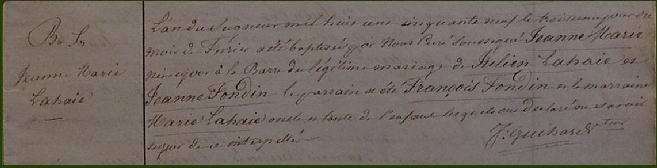 B. S.
Jeanne Marie
Lahaie
L'an du Seigneur mil huit cent cinquante neuf le troisième jour du
mois de Février a été baptisée par Nous Curé soussigné Jeanne Marie
née à la Barre du légitime mariage de Julien Lahaie et
Jeanne Fondin le parrain a été François Fondin et la marraine
Marie Lahaie oncle et tante de l'enfant lesquels ont déclaré ne savoir
signer de ce interpellés
J. Guehard